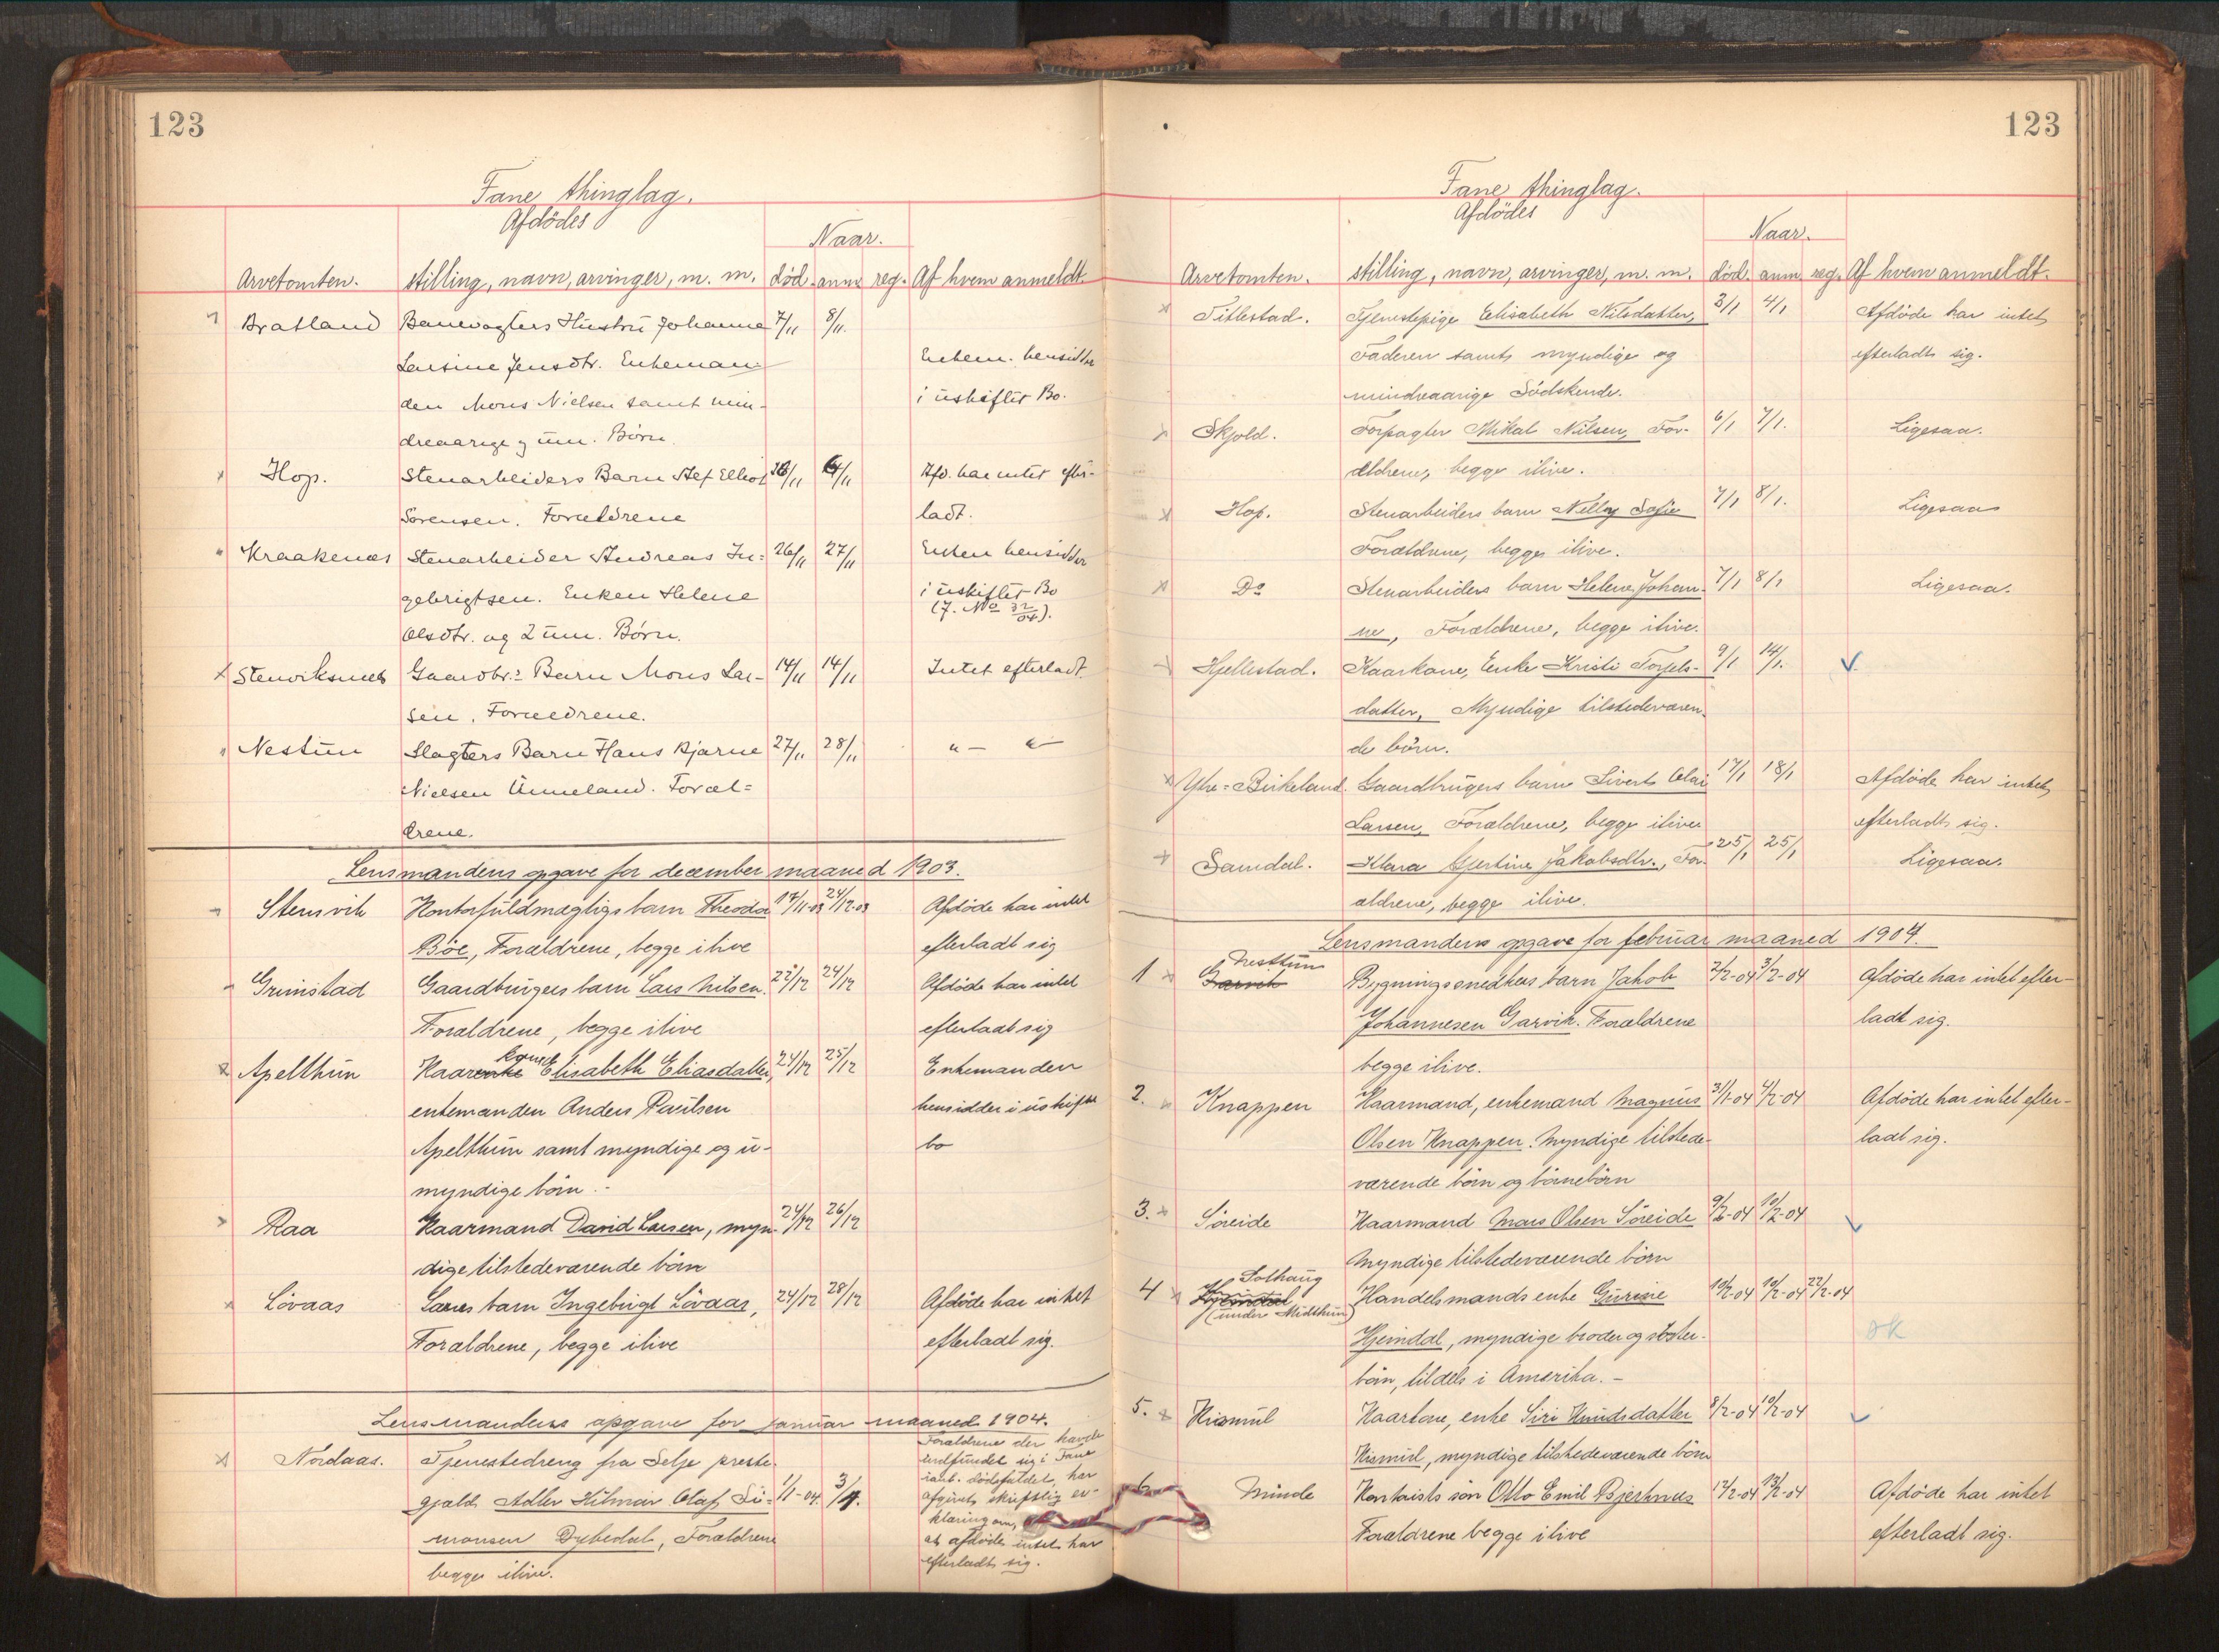 123
Fane thinglag.
Afdödes
Naar.
Arvetomten. stilling, navn, arvinger, m. m. död. anm. reg. Af hvem anmeldt.
Bratland Banevogters Hustru Johanne 7/11 8/11.
Lensine Jensdtr. Enkeman- Enkem. hensidder
den Mons Nielsen samt min- i uskiftet Bo.
dreaarige g um. Børn.
Hop. Stenarbeiders Barn 26/11 Afd. har intet efter-
Sørensen. Forældrene ladt.
Kraakenes Stenarbeider Andreas In= 26/11 27/11 Enken hensidder
gebrigtsen. Enken Helene i uskiftet Bo
(7. No 32/04).
Olsdtr. og 2 um. Børn.
Stenviksnes Gaardbr.s Barn Mons Lar- 14/11 14/11 Intet efterladt
sen, Forældrene.
Nestun Slagters Barn Hans Bjarne 27/11 28/11 " — " —
Nielsen Unneland. Foræl=
drene.
Lensmandens opgave for december maaned 1903.
Stensvik Kontorfuldmægtigs barn Theodor 17/11-03 24/12-03 Afdöde har intet
Böe, Forældrene, begge ilive efterladt sig
Grimstad Gaardbrugers barn Lars Nilsen. 22/12 24/12 Afdöde har intet
Forældrene, begge ilive efterladt sig
kone
Apelthun Kaarenke Elisabeth Eliasdatter, 24/12 25/12 Enkemanden
enkemanden Anders Paulsen hensidder i uskiftet
Apelthun samt myndige og u- bo
myndige börn. -
Raa Kaarmand David Larsen, myn- 24/12 26/12
dige tilstedeværende börn
Lövaas barn Ingebrigt Lövaas, 24/12 28/12 Afdöde har intet
Forældrene, begge ilive efterladt sig.
Lensmandens opgave for januar maaned 1904.
Nordaas. Tjenestedreng fra Selje præste- Forældrene der havde
indfundet sig i Fane
gjæld Adler Hilmar Olaf Si= 1/1-04. 3/1. dödsfaldet, har
afgivet skriftlig er-
klæring om,
monsen Dybedal, Forældrene at afdöde intet har
begge ilive. efterladt sig.
123
Fane thinglag.
Afdödes
Naar.
Arvetomten. stilling, navn, arvinger, m. m. död. anm. reg. Af hvem anmeldt.
Titlestad. Tjenestepige Elisabeth Nilsdatter, 3/1 4/1 Afdöde har intet
Faderen samt myndige og efterladt sig.
mindreaarige Södskende.
Skjold. Forpagter Mikal Nilsen, For- 6/1 7/1. Ligesaa.
ældrene, begge ilive.
Hop. Stenarbeiders barn Nelly Sofie 7/1 8/1. Ligesaa
Forældrene, begge ilive.
Do Stenarbeiders barn Helene Johan- 7/1 8/1 Ligesaa.
ne, Forældrene, begge ilive.
Hjellestad. Kaarkone, Enke Kristi Torjels- 9/1 14/1.
datter, Myndige tilstedeværen-
de börn.
Ytre=Birkeland. Gaardbrugers barn Sivert Olai 17/1 18/1 Afdöde har intet
Larsen, Forældrene, begge ilive efterladt sig.
Samdal. Klara Gjertine Jakobsdtr., For- 25/1 25/1 Ligesaa.
ældrene, begge ilive.
Lensmandens opgave for februar maaned 1904.
Nesttun
1 Garvik Bygningssnedkers barn Jakob 2/2-04 3/2-04 Afdöde har intet efter-
Johannesen Garvik. Forældrene ladt sig.
begge ilive.
2. Knappen Kaarmand, enkemand Magnus 31/1-04 4/2-04 Afdöde har intet efter-
Olsen Knappen. Myndige tilstede- ladt sig.
værende börn og börnebörn
3. Söreide Kaarmand Mons Olsen Söreide 9/2-04 10/2-04
Myndige tilstedeværende börn
Solhaug
4 Hjeimdal Handelsmands enke Gurine 10/2-04 10/2-04 22/2-04
(under Midthun)
Hjeimdal, myndige broder og söster- ok
börn, tildels i Amerika. -
5. Kismul Kaarkone, enke Siri Knudsdatter 8/2-04 10/2-04
Kismul, myndige tilstedeværende börn
6. Minde Kontorists sön Otto Emil Bjerknes 12/2-04 13/2-04 Afdöde har intet
Forældrene begge ilive efterladt sig.